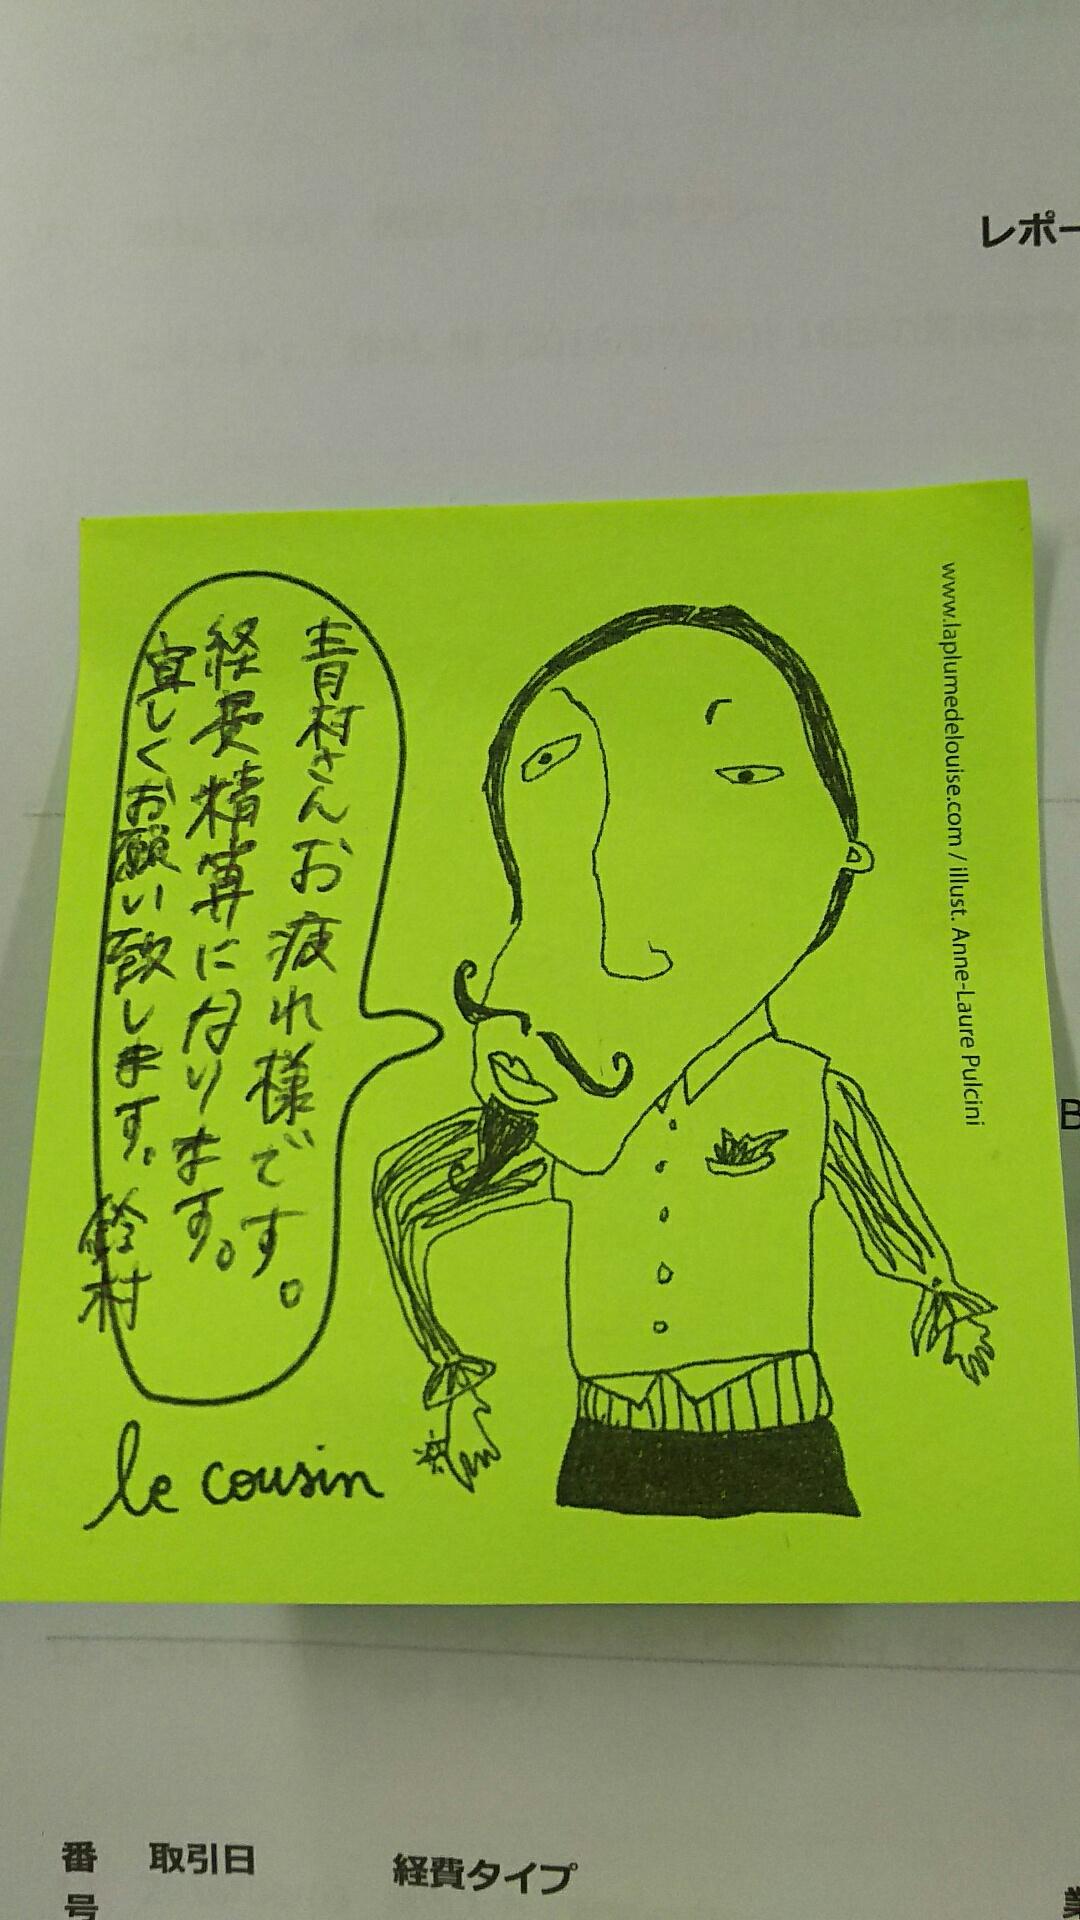 レポー
www.laplumedelouise.com / illust. Anne-Laure Pulcini
青村さんお疲れ様です。
経費精算になります。
宜しくお願い致します。鈴村
le cousin
B
番号
取引日
経費タイプ